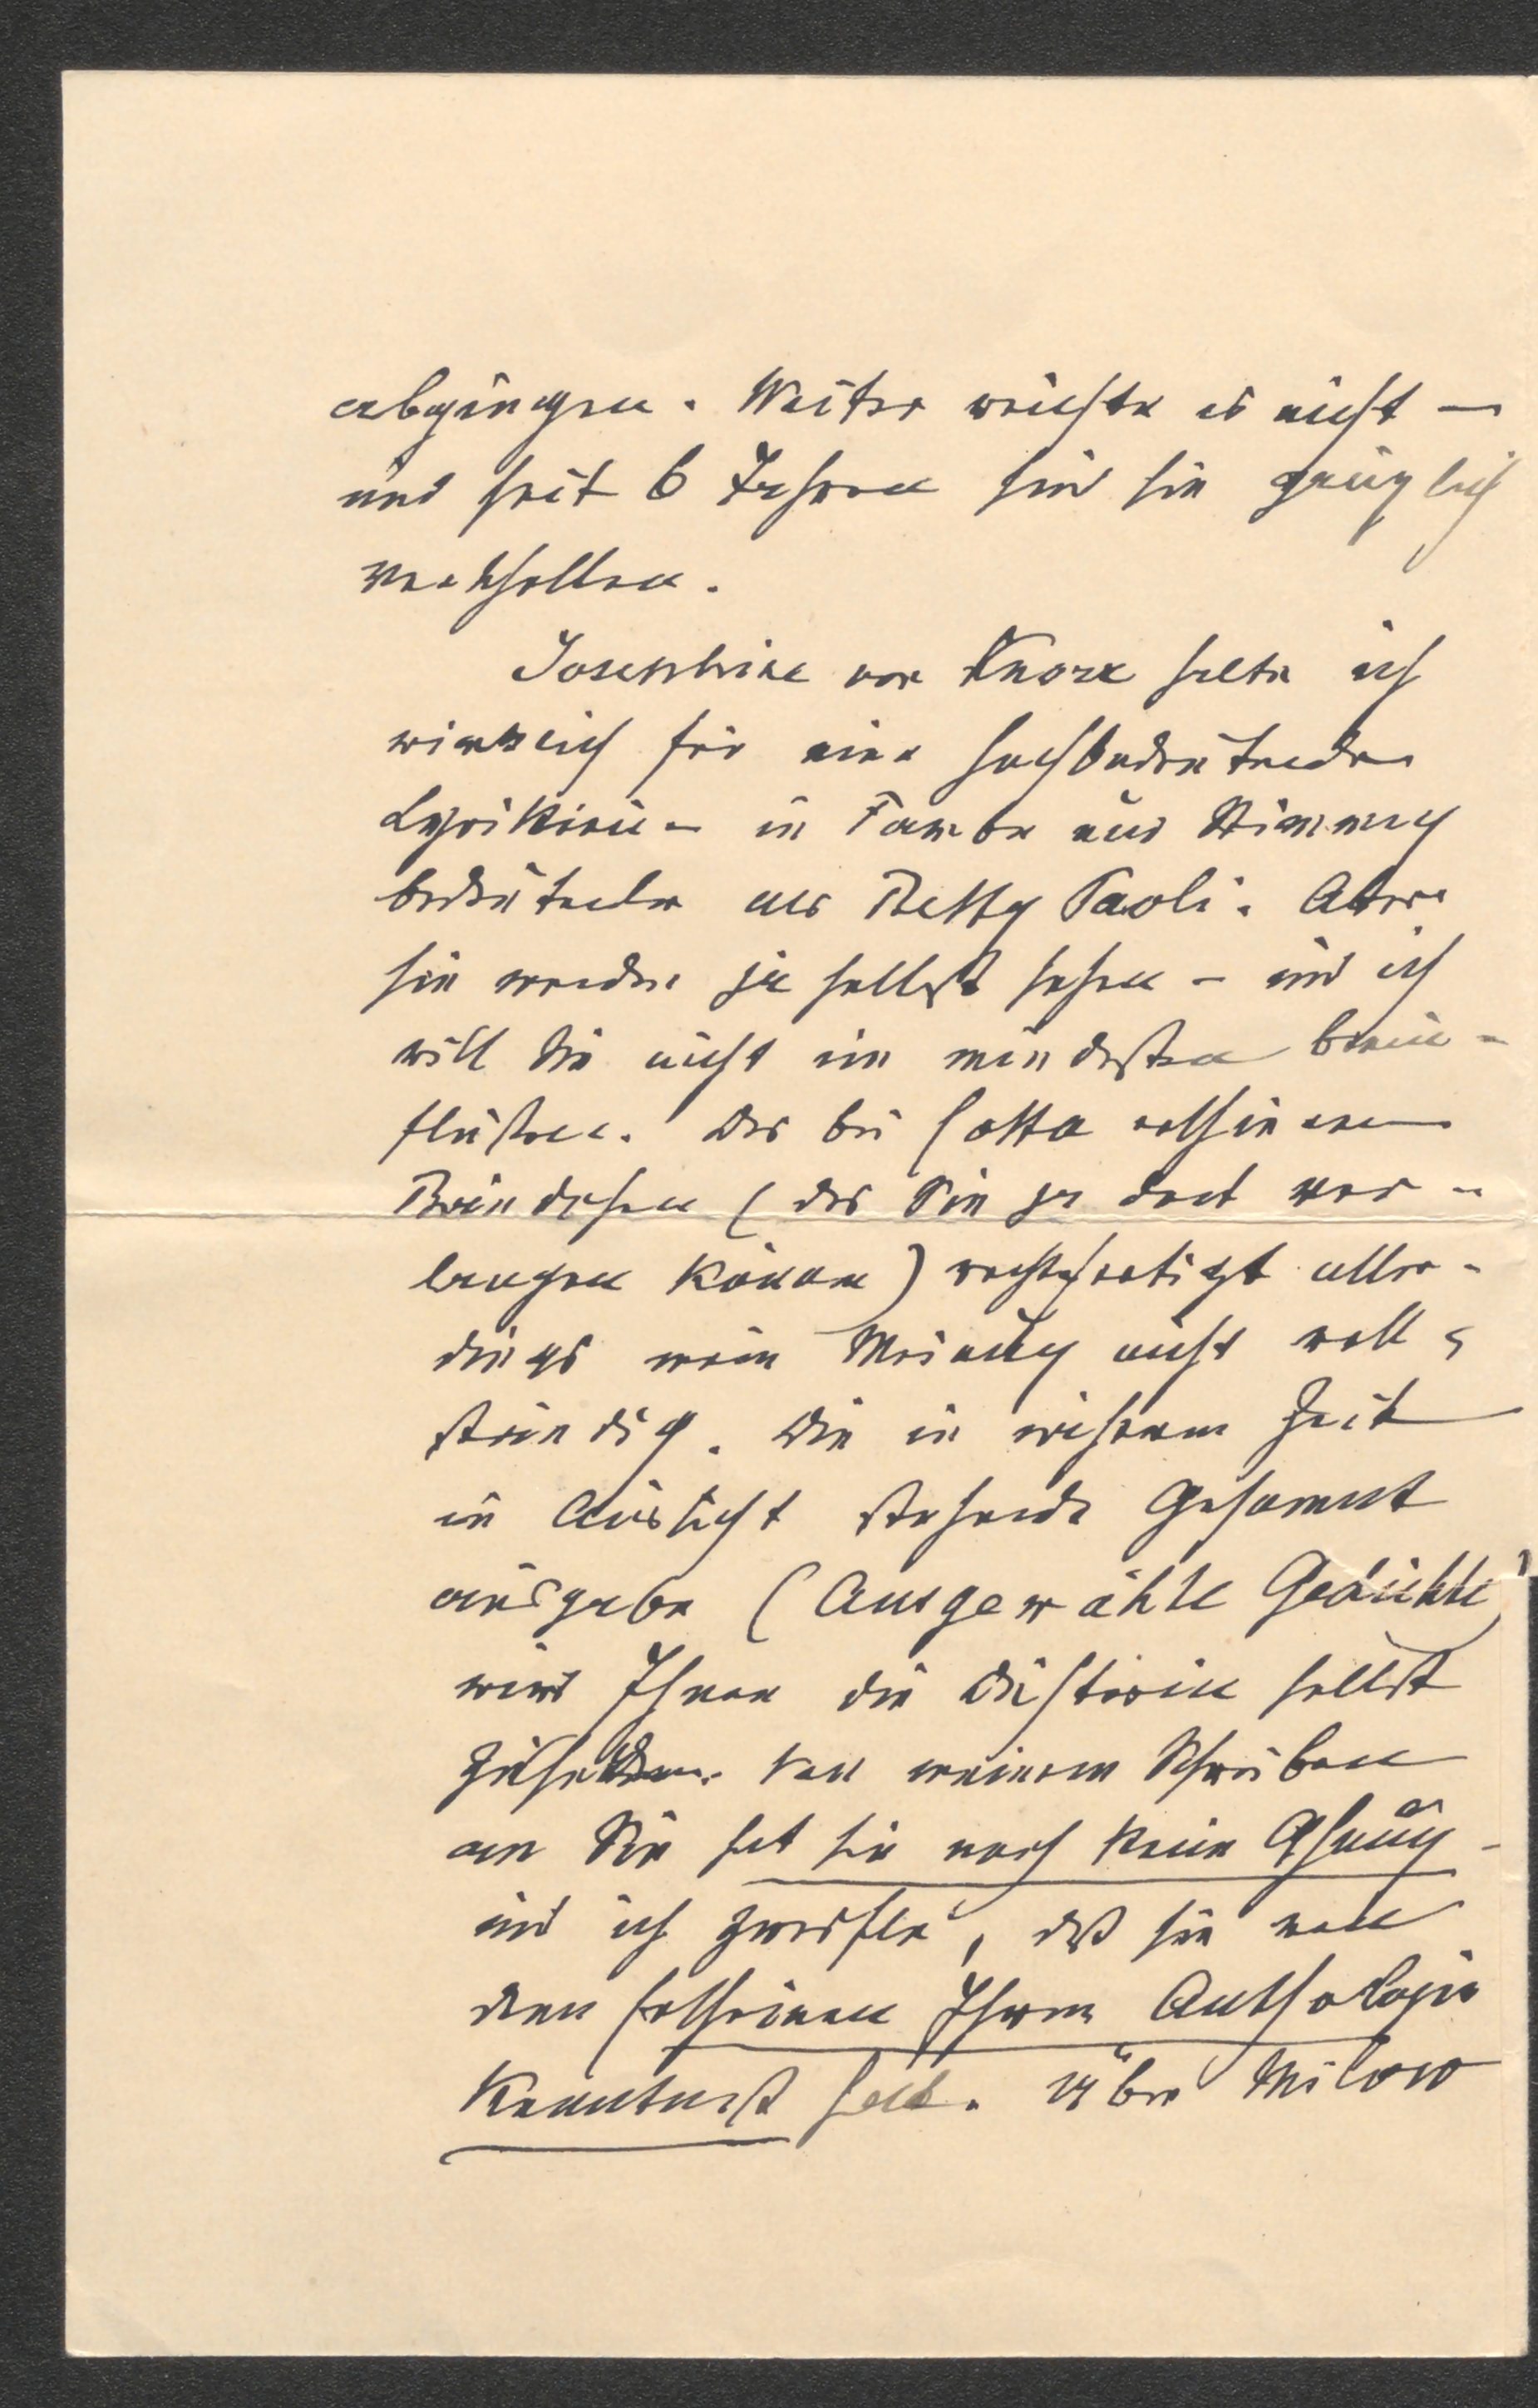 abgingen. Weiter reichte es nicht —
und seit 6 Jahren sind sie gänzlich
verschollen.
Josephine von Knorr halte ich
wirklich für eine hochbedeutende
Lyrikerin – in Farbe und Stimmung
bedeutender als Betty Paoli. Aber
Sie werden ja selbst sehen – und ich
will Sie nicht im mindesten beein-
flußen. Das bei Cotta erschienene
Bändchen (das Sie ja dort ver-
langen können) rechtfertigt aller-
dings meine Meinung nicht voll-
ständig. Die in einiger Zeit
in Aussicht stehende Gesammt
ausgabe (Ausgewählte Gedichte)
wird Ihnen die Dichterin selbst
zusenden. Von meinem Schreiben
an Sie hat sie noch keine Ahnung –
und ich zweifle, daß sie von
dem Erscheinen Ihrer Anthologie
Kenntniß hat. Über Milow